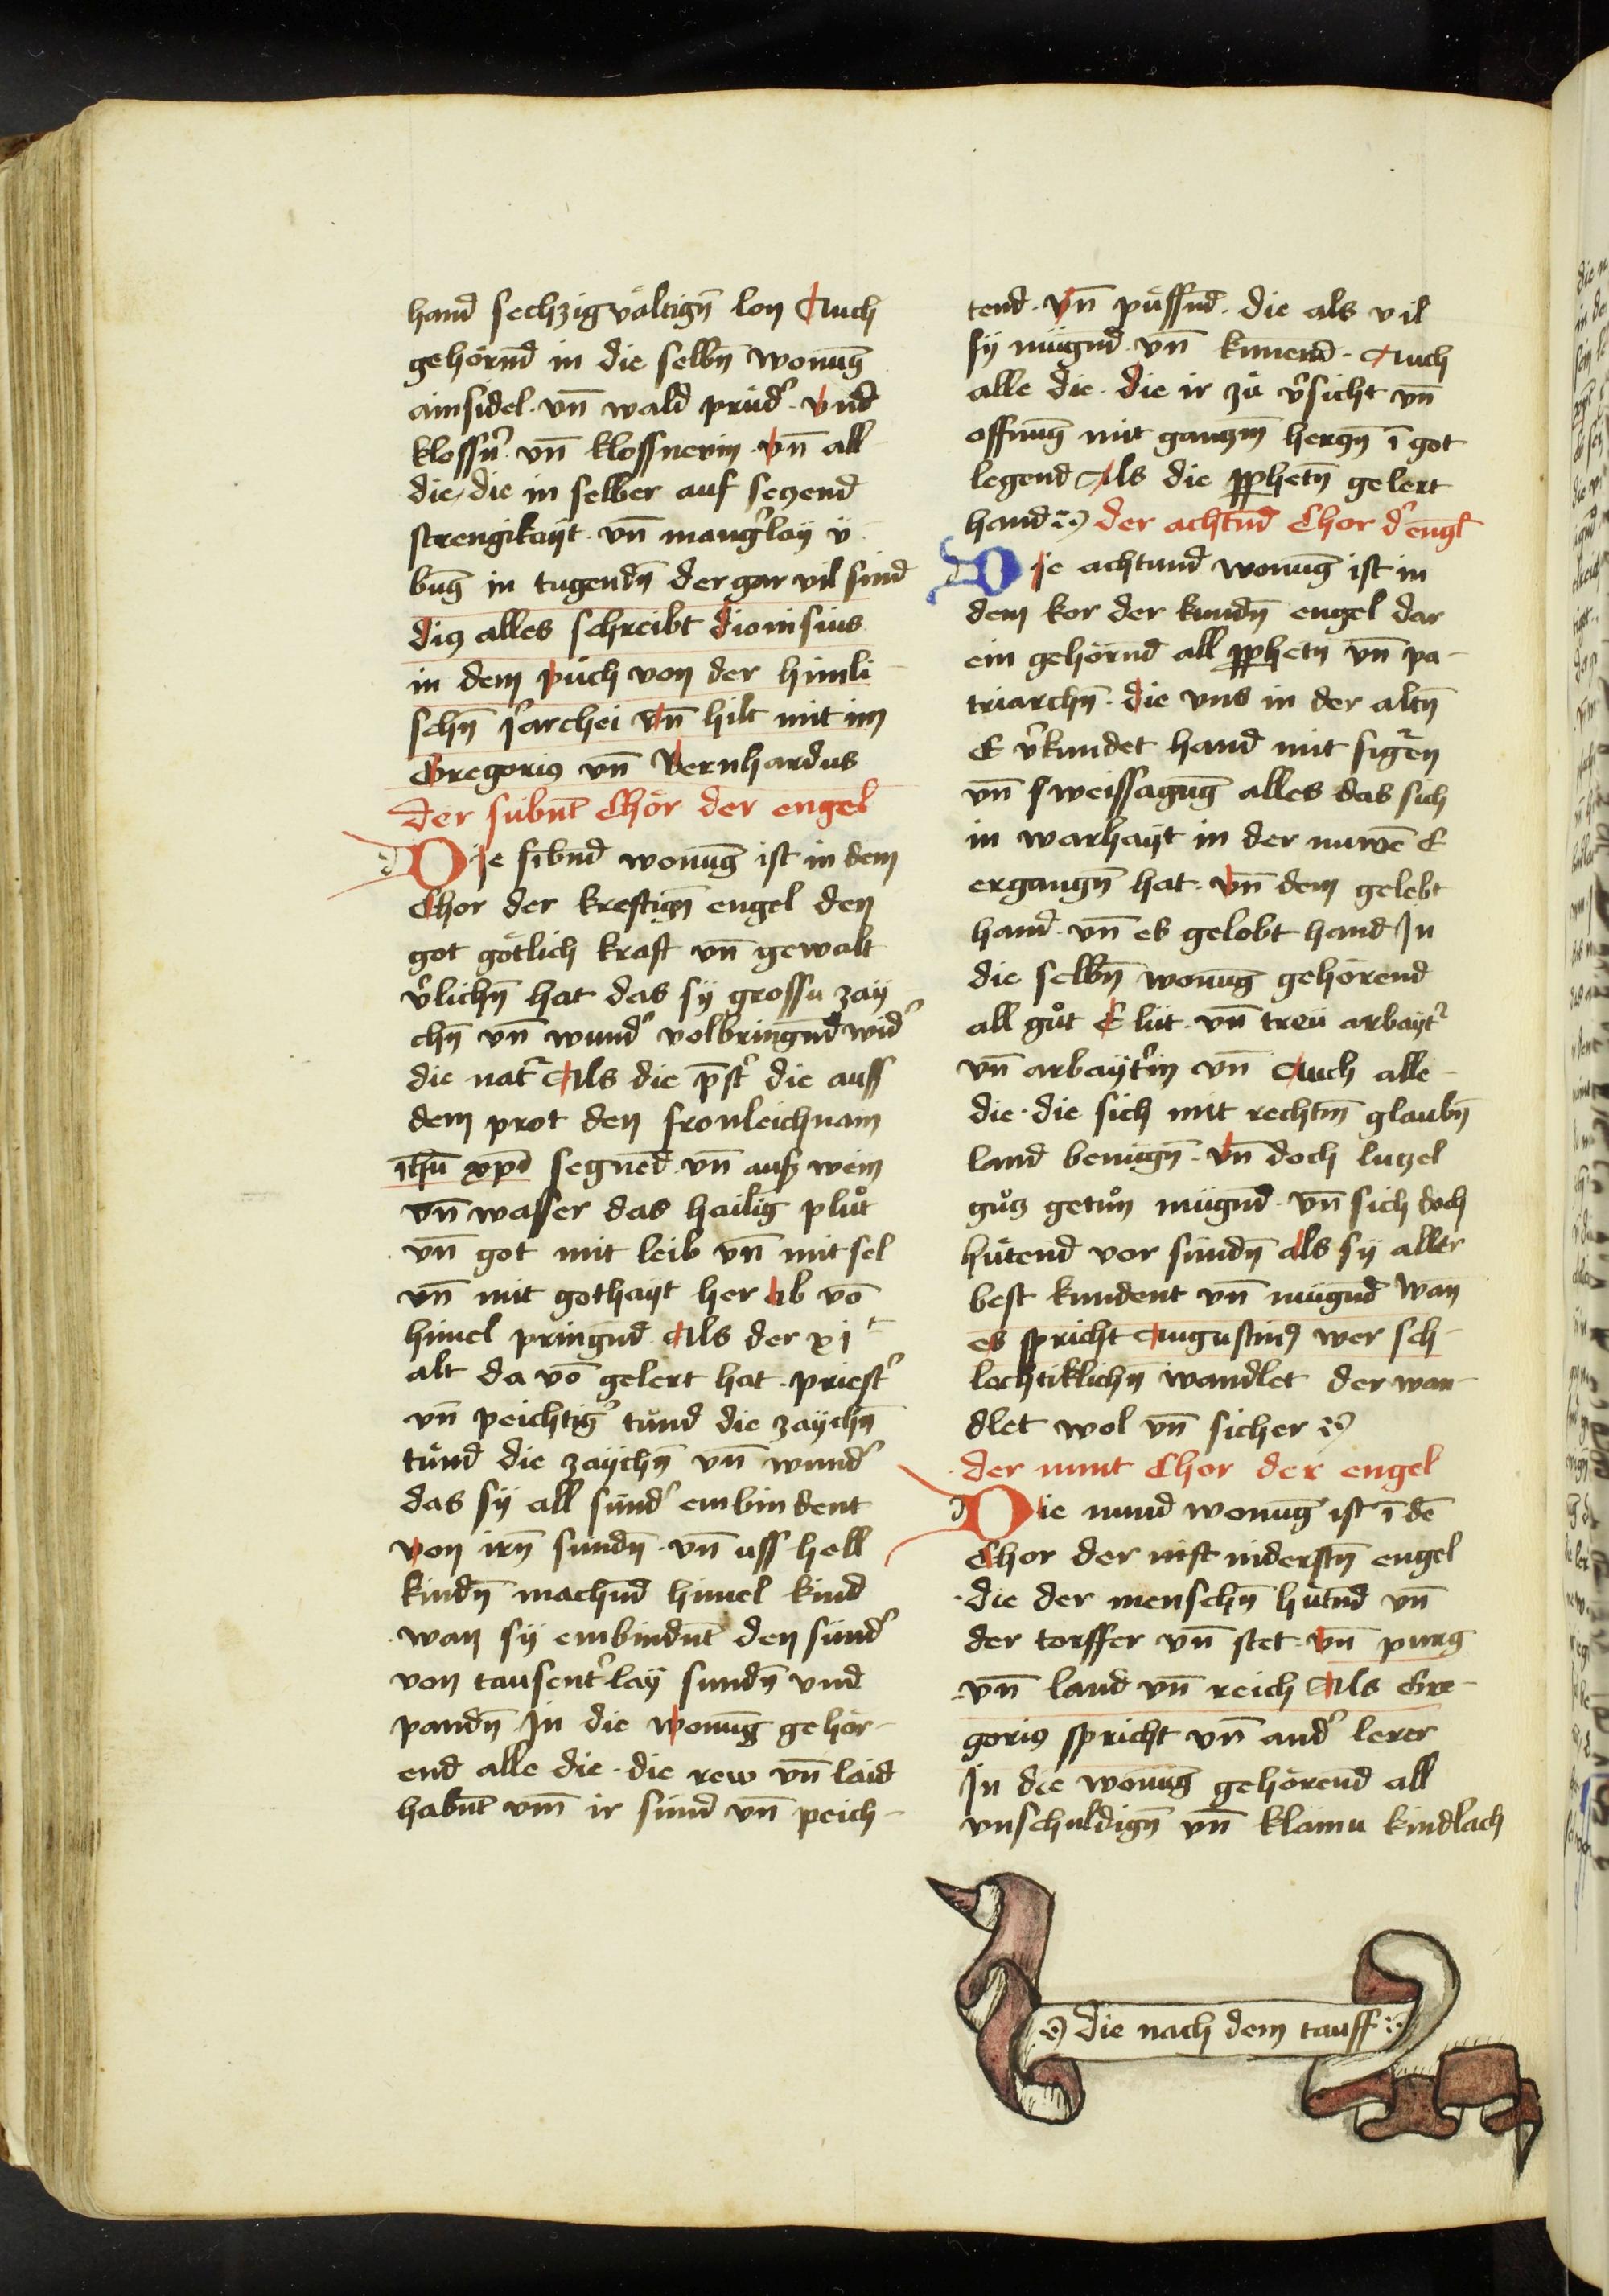 hand sechzigvältign̄ lon Auch
gehörnd̄ in die selbn̄ wonūg
ainsidel · vn̄ wald prüdˀ · vnd
klossnˀ · vn̄ klossnerin · vn̄ all
die / die in selber auf seczend
strengikayt · vn̄ mangˀlay ü
būg in tugendn̄ der gar vil sind
dis alles schreibt dionisius
in dem puch von der himli
schn̄ jˀarchei vn̄ hilt mit im
Gregorius vn̄ Bernhardus
der sübnt̄ Chör der engel
Die sibnd̄ wonūg ist in dem
Chor der kreftign̄ engel den
got götlich kraft vn̄ gewalt
vˀlichn̄ hat das sy grossu zay
chn̄ vn̄ wundˀ volbringnd̄ widˀ
die natˀ Als die p̄stˀ die auss
dem prot den fronleichnam
ih̄u xp̄i segned̄ vn̄ auß wein
vn̄ wasser das hailig plůt
vn̄ got mit leib vn̄ mit sel
vn̄ mit gothayt her ab vō
himel pringnd̄ Als der xjᵗ
alt da vō gelert hat · priestˀ
vn̄ peichtigˀ tůnd die zaychn̄
tůnd die zaychn̄ vn̄ wundˀ
das sy all sündˀ embindent
von irn̄ sundn̄ · vn̄ uss hell
kindn̄ machnd̄ himel kind
wan sy embindnt̄ den sündˀ
von tausentˀlay sundn̄ vnd
pandn̄ Jn die wonūg gehör-
end alle die · die rew vn̄ laid
habnt̄ vm̄ ir sünd vn̄ peich-
tend · vn̄ püssnd̄ · die als vil
sy mügnd̄ · vn̄ kunend · Auch
alle die · die ir zů vˀsicht vn̄
offnūg mit ganczm̄ herczn̄ ī got
legend Als die ꝓphetn̄ gelert
hand der achtnd̄ Chor dˀ engl
Die achtund wonūg ist in
dem kor der kundn̄ engel dar
ein gehörnd all ꝓphetn̄ vn̄ pa-
triarchn̄ · die vns in der altn̄
E vˀkundet hand mit figˀen
vn̄ sweissagūg alles das sich
in warhayt in der nuwē E
ergangn̄ hat · vn̄ dem gelebt
hand · vn̄ es gelobt hand Jn
die selbn̄ wonūg gehörend
all gůt E lüt · vn̄ treü arbaytˀ
vn̄ arbaytˀin vn̄ Auch alle
die · die sich mit rechtm̄ glaubn̄
land benügn̄ · vn̄ doch luczel
gůcz getůn mügnd̄ · vn̄ sich doch
hütend vor sündn̄ als sy aller
best kundent vn̄ mügnd̄ wan
es spricht Augustinꝰ wer sch-
lechtiklichn̄ wandlet der wan-
dlet wol vn̄ sicher
der nunt Chor der engel
Die nund wonūg ist ī dē
Chor der nist niderstn̄ engel
die der menschn̄ hütnd̄ vn̄
der torffer vn̄ stet · vn̄ purg
vn̄ land vn̄ reich Als Gre-
gorius spricht vn̄ andˀ lerer
Jn die wonūg gehörend all
vnschuldign̄ vn̄ klainu kindlach
die nach dem tauff